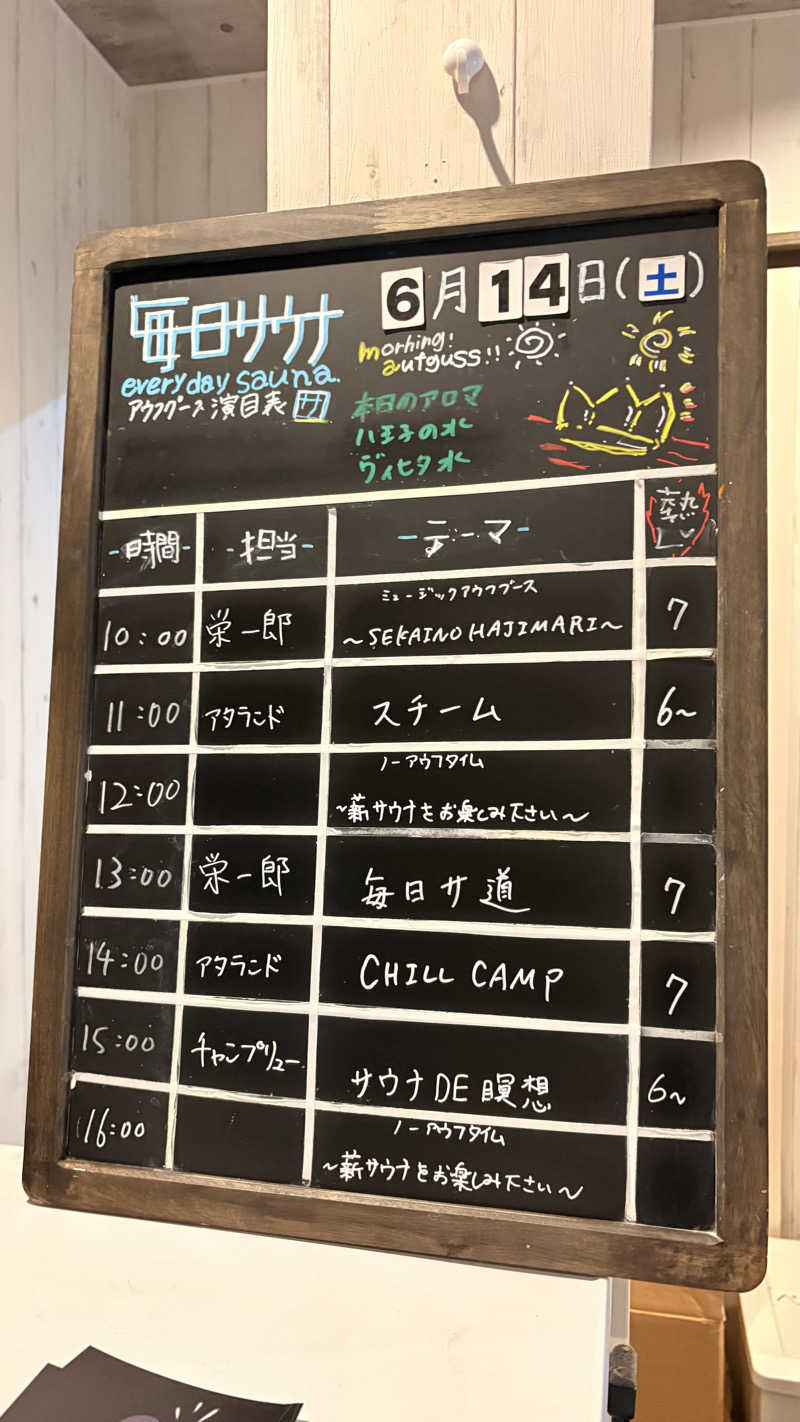 毎日サウナ
everyday sauna.
アウフグース演目表 サ
6月14日(土)
morning!
autguss!!
本日のアロマ
八王子の水
ヴィヒタ水
時間 担当 テーマ 熱
10:00 栄一郎 ミュージックアウフグース
~SEKAINO HAJIMARI~ 7
11:00 アタランド スチーム 6~
12:00 ノーアウフタイム
~薪サウナをお楽しみ下さい~
13:00 栄一郎 毎日サ道 7
14:00 アタランド CHILL CAMP 7
15:00 チャンプリュー サウナDE瞑想 6~
16:00 ノーアウフタイム
~薪サウナをお楽しみ下さい~